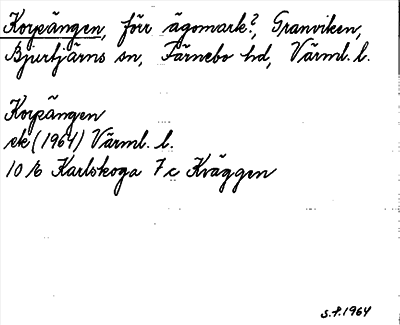 Korpängen, förr ägomark?, Granviken,
Bjurtjärns sn, Färnebo hd, Värml. l.
Korpängen
ek (1964) Värml. l.
10 E Karlskoga 7 c Kväggen
S.P. 1964